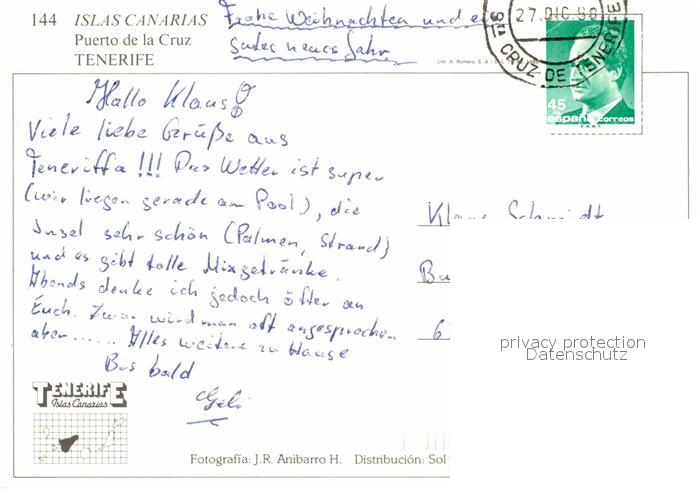 144 ISLAS CANARIAS
Puerto de la Cruz
TENERIFE
Frohe Weihnachten und ei
gutes neues Jahr
Lito A. Romero, S. A. -
27. DIC. 86
STA. CRUZ DE TENERIFE
45
españa correos
F.N.M.T.
Hallo Klaus!
Viele liebe Grüße aus
Teneriffa!!! Das Wetter ist super
(wir liegen gerade am Pool), die
Insel sehr schön (Palmen, Strand)
und es gibt tolle Mixgetränke.
Abends denke ich jedoch öfter an
Euch. Zwar wird man oft angesprochen
aber...... Alles weitere zu Hause
Bis bald
Geli
Klaus Schmidt
Ba
6
privacy protection
Datenschutz
TENERIFE
Islas Canarias
Fotografía: J.R. Anibarro H. Distribución: Sol